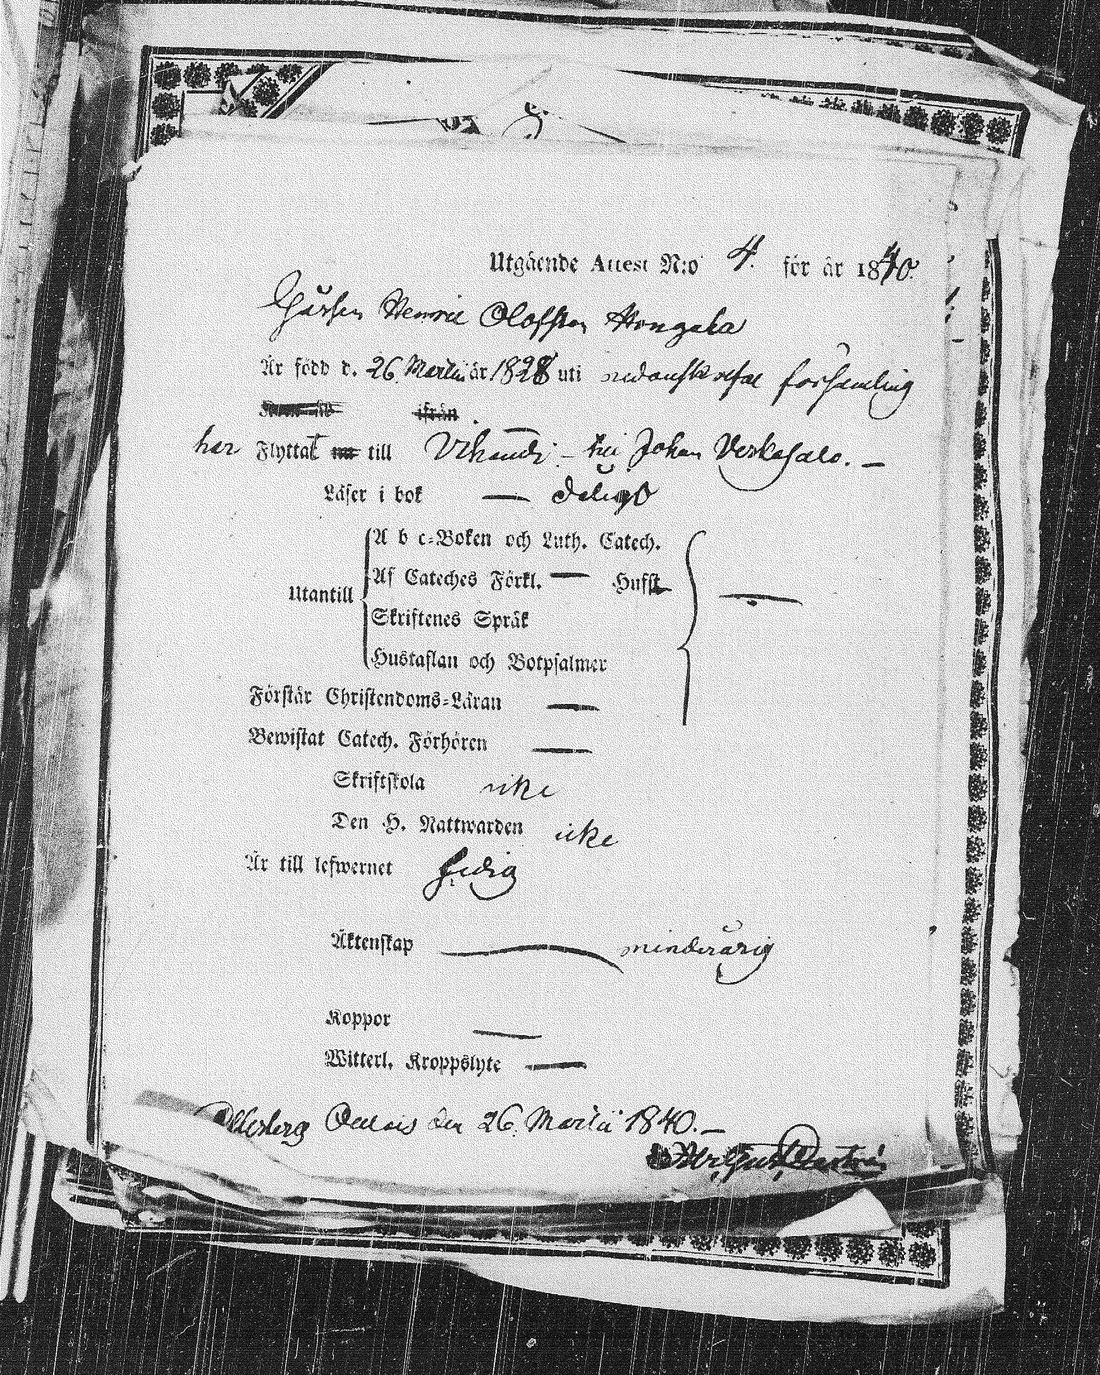 Utgående Attest N:o 4. för år 1840.
Gåssen Henric Olofsson Hongaka
Är född d. 26 Martii år 1828 uti församling
ifrån
har Flyttat till Uhandi - hei Johan Verkasalo. —
Läser i bok — dåligt
A b c-Boken och Luth. Catech.
Af Cateches Förkl. — Husst.
Utantill
Skriftenes Språk
Hustaflan och Botpsalmer
Förstår Christendoms-Läran —
Bewistat Catech. Förhören —
Skriftskola icke
Den H. Nattwarden icke
Är till lefwernet
Äktenskap — minderårig
Koppor —
Witterl. Kroppslyte —
den 26 Martii 1840. —